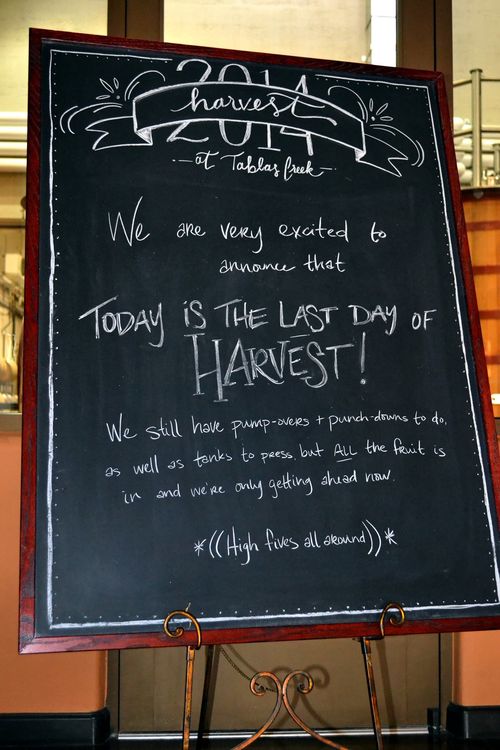 2014
harvest
at Tablas Creek
We are very excited to
announce that
TODAY IS THE LAST DAY OF
HARVEST!
We still have pump-overs + punch-downs to do,
as well as tanks to press, but ALL the fruit is
in and we're only getting ahead now.
*((High fives all around))*